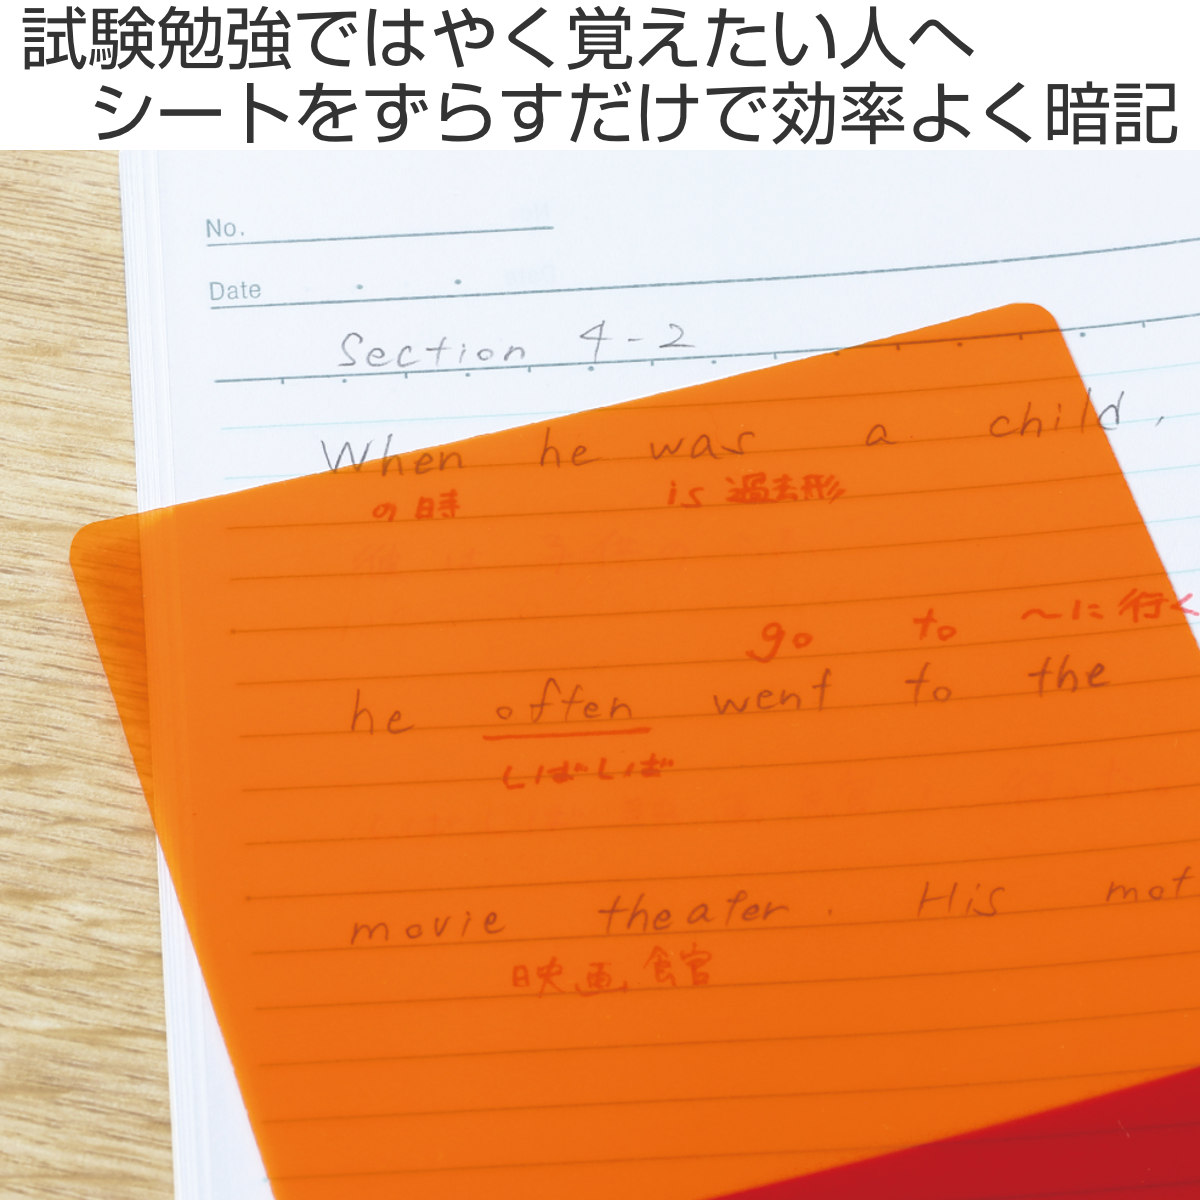 試験勉強ではやく覚えたい人へ
シートをずらすだけで効率よく暗記
No.
Date
Section 4-2
When he was a child,
の時 is 過去形
go to ～に行く
he often went to the
しばしば
movie theater. His mot
映画館